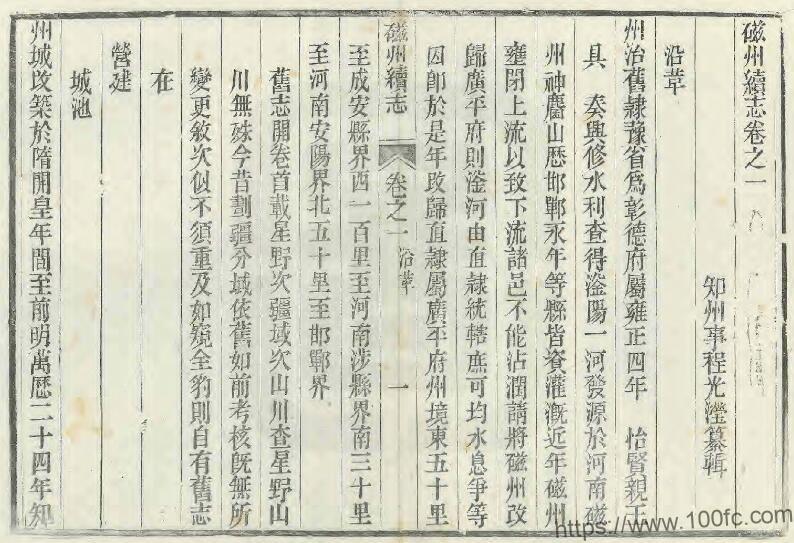 磁州續志卷之一
知州事程光瀅纂輯
沿革
州治舊隸豫省爲彰德府屬雍正四年 怡賢親王
具 奏興修水利查得滏陽一河發源於河南磁
州神麕山歷邯鄲永年等縣皆資灌漑近年磁州
壅閉上流以致下流諸邑不能沾潤請將磁州改
歸廣平府則滏河由直隸統轄庶可均水息爭等
因卽於是年改歸直隸屬廣平府州境東五十里
磁州續志 卷之一 沿革 一
至成安縣界西一百里至河南涉縣界南三十里
至河南安陽界北五十里至邯鄲界
舊志開卷首載星野次疆域次山川查星野山
川無殊今昔劃疆分域依舊如前考核旣無所
變更敘次似不須重及如窺全豹則自有舊志
在
營建
城池
州城改築於隋開皇年間至前明萬歷二十四年知
https://www.100fc.com